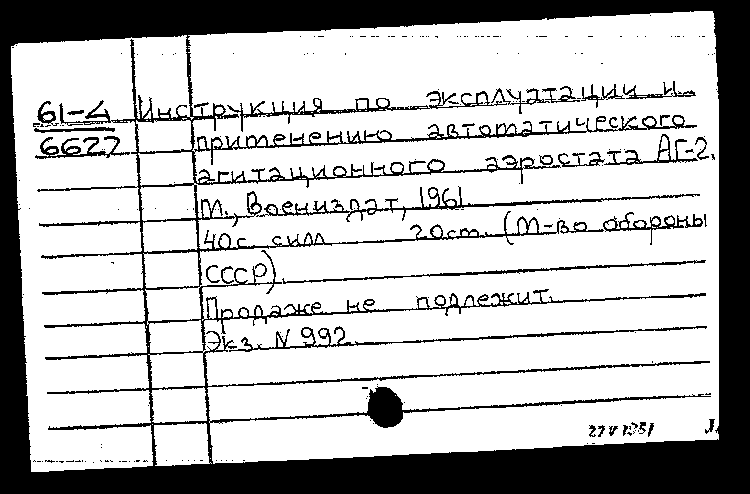 61-4
6627
Инструкция по эксплуатации и
применению автоматического
агитационного аэростата АГ-2.
М., Воениздат, 1961.
40с. силл 20см. (М-во обороны
СССР).
Продаже не подлежит.
Экз. N 992.